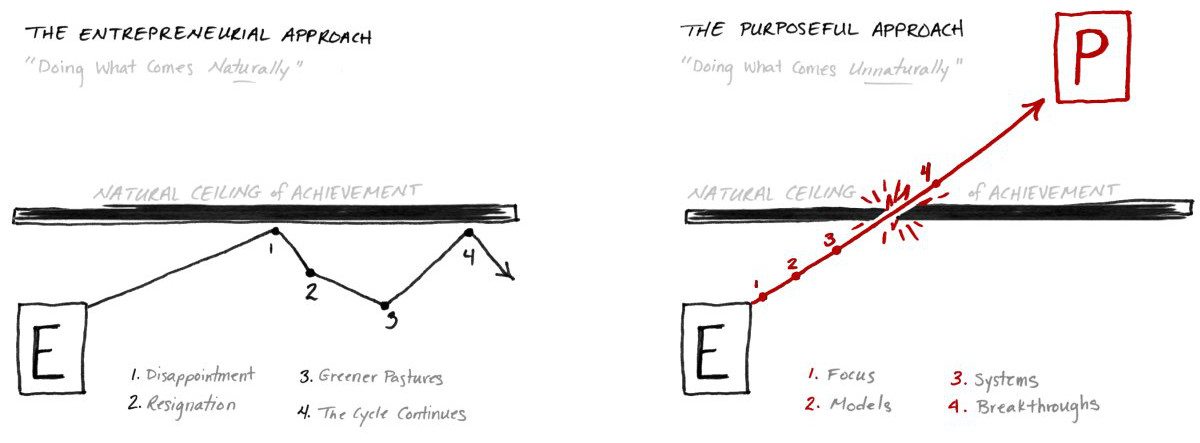 THE ENTREPRENEURIAL APPROACH
"Doing What Comes Naturally"
NATURAL CEILING of ACHIEVEMENT
1
2
3
4
E
1. Disappointment
2. Resignation
3. Greener Pastures
4. The Cycle Continues
THE PURPOSEFUL APPROACH
"Doing What Comes Unnaturally"
P
NATURAL CEILING of ACHIEVEMENT
4
3
2
1
E
1. Focus
2. Models
3. Systems
4. Breakthroughs